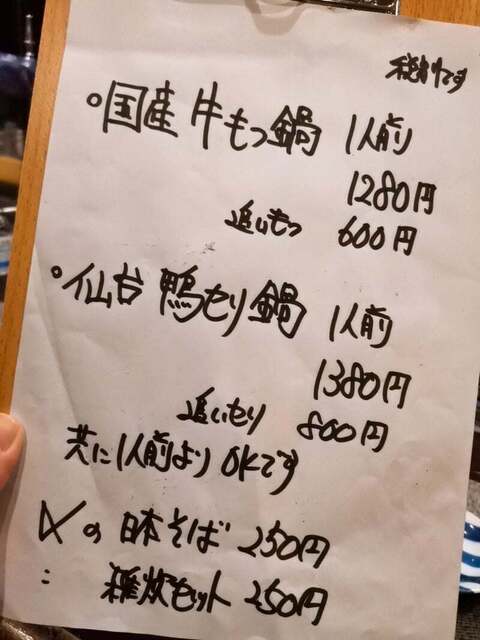 税別です
○国産牛もつ鍋 1人前
1280円
追いもつ 600円
○仙台 鴨せり鍋 1人前
1380円
追いせり 800円
共に1人前よりOKです
〆の 日本そば 250円
: 雑炊セット 250円